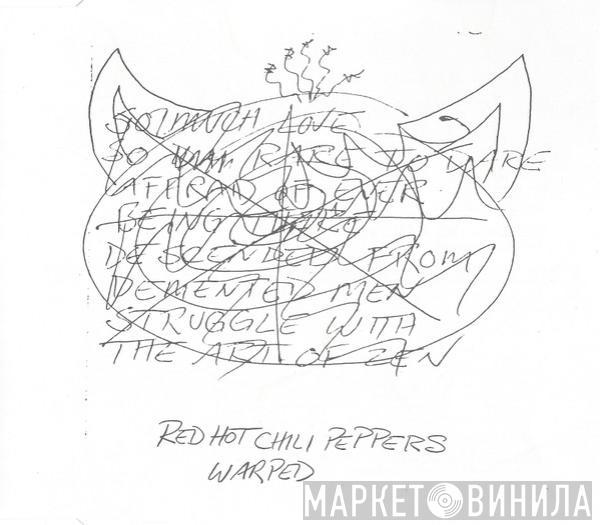 SO MUCH LOVE
SO RARE TO DARE
AFFRAID OF EVER
BEING THERE
DESCENDED FROM
DEMENTED MEN
STRUGGLE WITH
THE ART OF ZEN
RED HOT CHILI PEPPERS
WARPED
МАРКЕТ ВИНИЛА